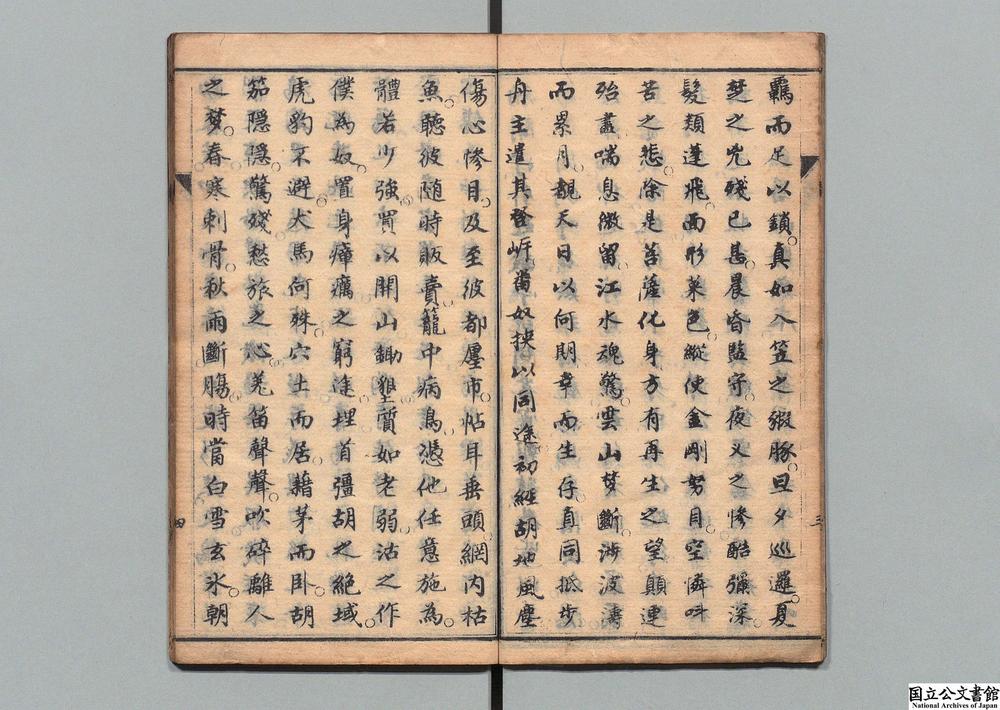 羈而足以鎖真如入笠之豭豚旦夕巡邏夏
楚之兇殘已甚晨昏監守夜叉之慘酷彌深
髮類蓬飛面形菜色縱使金剛努目空憐叫
苦之悲除是菩薩化身方有再生之望顛連
殆盡喘息微留江水魂驚雲山梦斷涉波濤
而累月覩天日以何期幸而生存真同抵步
舟主遣其登岍番奴挾以同途初經胡地風塵
傷心慘目及至彼都廛市帖耳垂頭網內枯
魚聽彼随時販賣籠中病鳥憑他任意施為
體若少強買以開山鋤墾質如老弱沽之作
僕為奴置身瘴癘之窮途埋首彊胡之絕域
虎豹不避犬馬何殊穴土而居藉茅而卧胡
笳隱隱驚殘愁旅之心羌笛聲聲吹碎離人
之梦春寒刺骨秋雨斷腸時當白雪玄氷朝
三
四
国立公文書館
National Archives of Japan